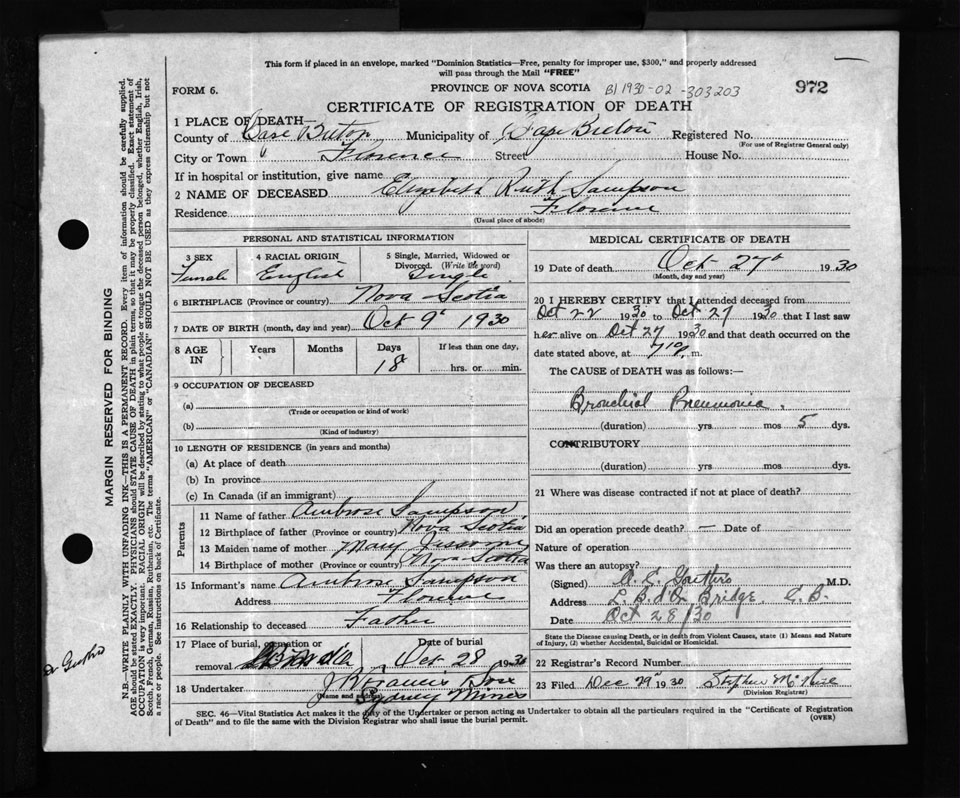 This form if placed in an envelope, marked "Dominion Statistics—Free, penalty for improper use, $300," and properly addressed
will pass through the Mail "FREE"
FORM 6. PROVINCE OF NOVA SCOTIA B/1930-02-303203 972
CERTIFICATE OF REGISTRATION OF DEATH
1 PLACE OF DEATH—
County of Cape Breton Municipality of Cape Breton Registered No.
(For use of Registrar General only)
City or Town Florence Street House No.
If in hospital or institution, give name
2 NAME OF DECEASED Elizabeth Ruth Sampson
Residence Florence
(Usual place of abode)
PERSONAL AND STATISTICAL INFORMATION
3 SEX 4 RACIAL ORIGIN 5 Single, Married, Widowed or
Divorced. (Write the word)
Female English Single
6 BIRTHPLACE (Province or country) Nova Scotia
7 DATE OF BIRTH (month, day and year) Oct 9th 1930
8 AGE IN Years Months Days If less than one day,
18 hrs. or min.
9 OCCUPATION OF DECEASED
(a)
(Trade or occupation or kind of work)
(b)
(Kind of industry)
10 LENGTH OF RESIDENCE (in years and months)
(a) At place of death
(b) In province
(c) In Canada (if an immigrant)
Parents
11 Name of father Ambrose Sampson
12 Birthplace of father (Province or country) Nova Scotia
13 Maiden name of mother Mary Jessome
14 Birthplace of mother (Province or country) Nova Scotia
15 Informant's name Ambrose Sampson
Address Florence
16 Relationship to deceased Father
17 Place of burial, cremation or Date of burial
removal Oct 28 1930
18 Undertaker J Francis
(Name and address) Sydney Mines
MEDICAL CERTIFICATE OF DEATH
19 Date of death Oct 27th 1930
(Month, day and year)
20 I HEREBY CERTIFY that I attended deceased from
Oct 22 1930 to Oct 27 1930 that I last saw
her alive on Oct 27 1930 and that death occurred on the
date stated above, at m.
The CAUSE of DEATH was as follows:—
Bronchial Pneumonia.
(duration) yrs mos 5 dys.
CONTRIBUTORY
(duration) yrs. mos. dys.
21 Where was disease contracted if not at place of death?
Did an operation precede death? — Date of
Nature of operation
Was there an autopsy?
(Signed) M.D.
Address Bridge. C.B.
Date Oct 28/30
State the Disease causing Death, or in death from Violent Causes, state (1) Means and Nature
of Injury, (2) whether Accidental, Suicidal or Homicidal.
22 Registrar's Record Number
23 Filed Dec 29th 1930 Stephen
(Division Registrar)
SEC. 46—Vital Statistics Act makes it the duty of the Undertaker or person acting as Undertaker to obtain all the particulars required in the "Certificate of Registration
of Death" and to file the same with the Division Registrar who shall issue the burial permit. (OVER)
MARGIN RESERVED FOR BINDING
N.B.—WRITE PLAINLY WITH UNFADING INK—THIS IS A PERMANENT RECORD. Every item of information should be carefully supplied.
AGE should be stated EXACTLY. PHYSICIANS should STATE CAUSE OF DEATH in plain terms, so that it may be properly classified. Exact statement of
OCCUPATION is very important. RACIAL ORIGIN will be described by stating to what people or tongue the deceased person belonged, whether English, Irish,
Scotch, French, German, Russian, Ruthenian, etc. The terms "AMERICAN" or "CANADIAN" SHOULD NOT BE USED as they express citizenship but not
a race or people. See instructions on back of Certificate.